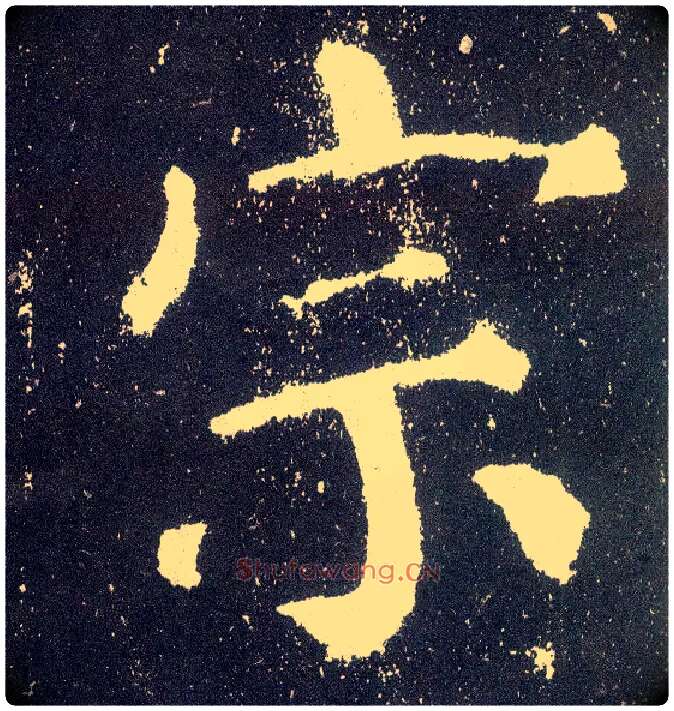 宗
Shufawang.CN